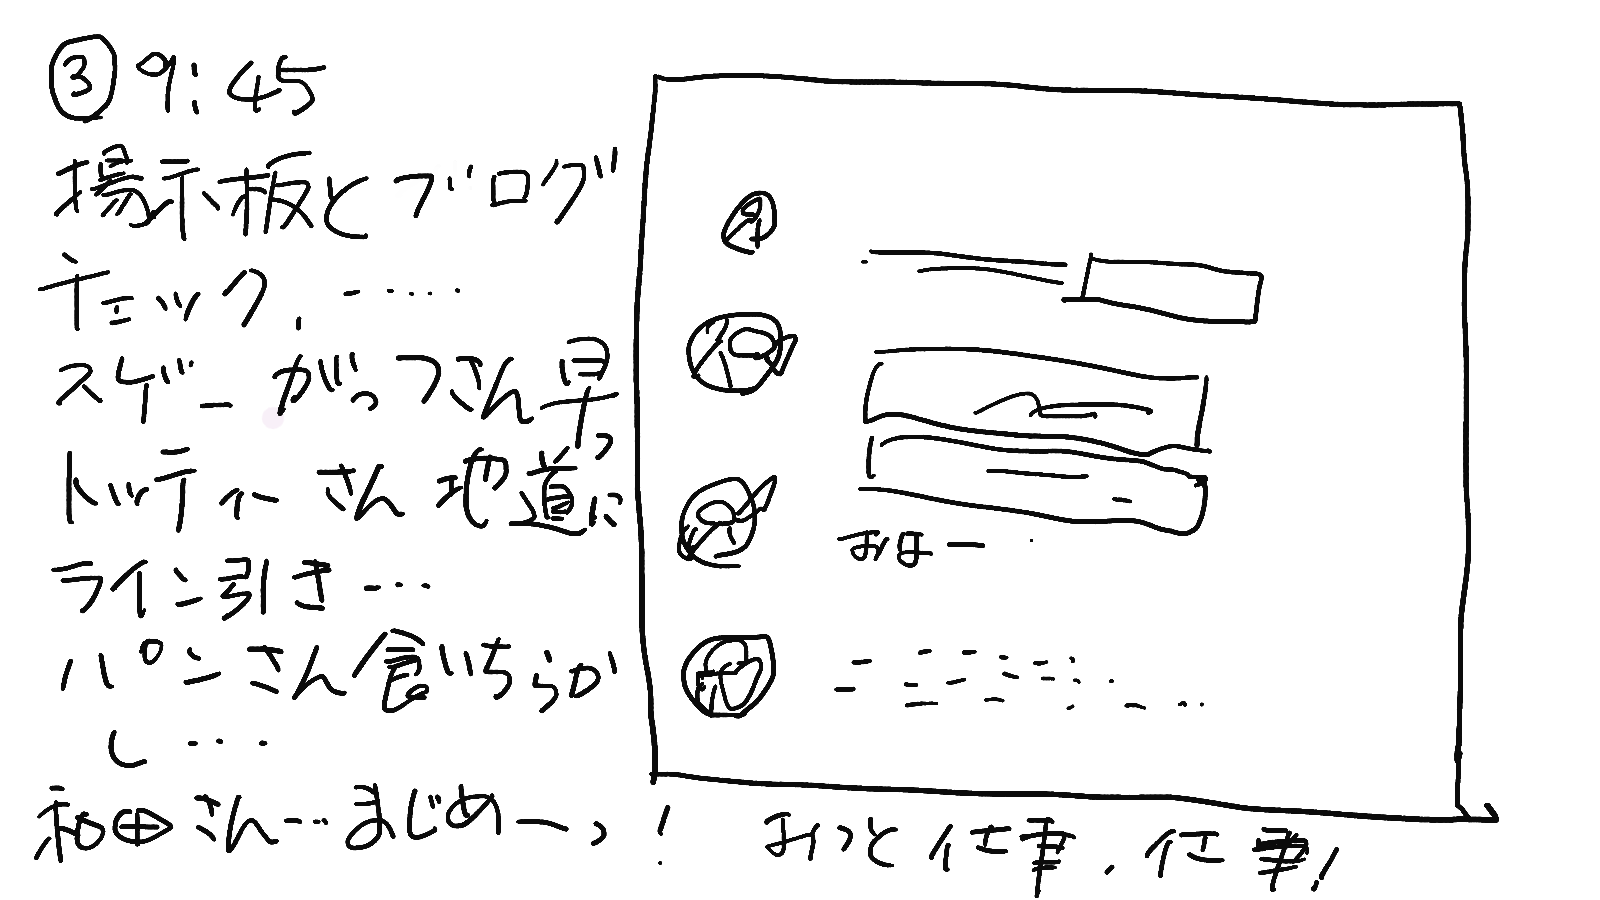 ③ 9:45
掲示板とブログ
チェック.-・・・・
スゲー がっつさん早っ
トッティーさん 地道に
ライン引き・・・
パンさん食いちらか
し・・・
和田さん・・・まじめーっ!
おはー
おっと仕事.仕事!